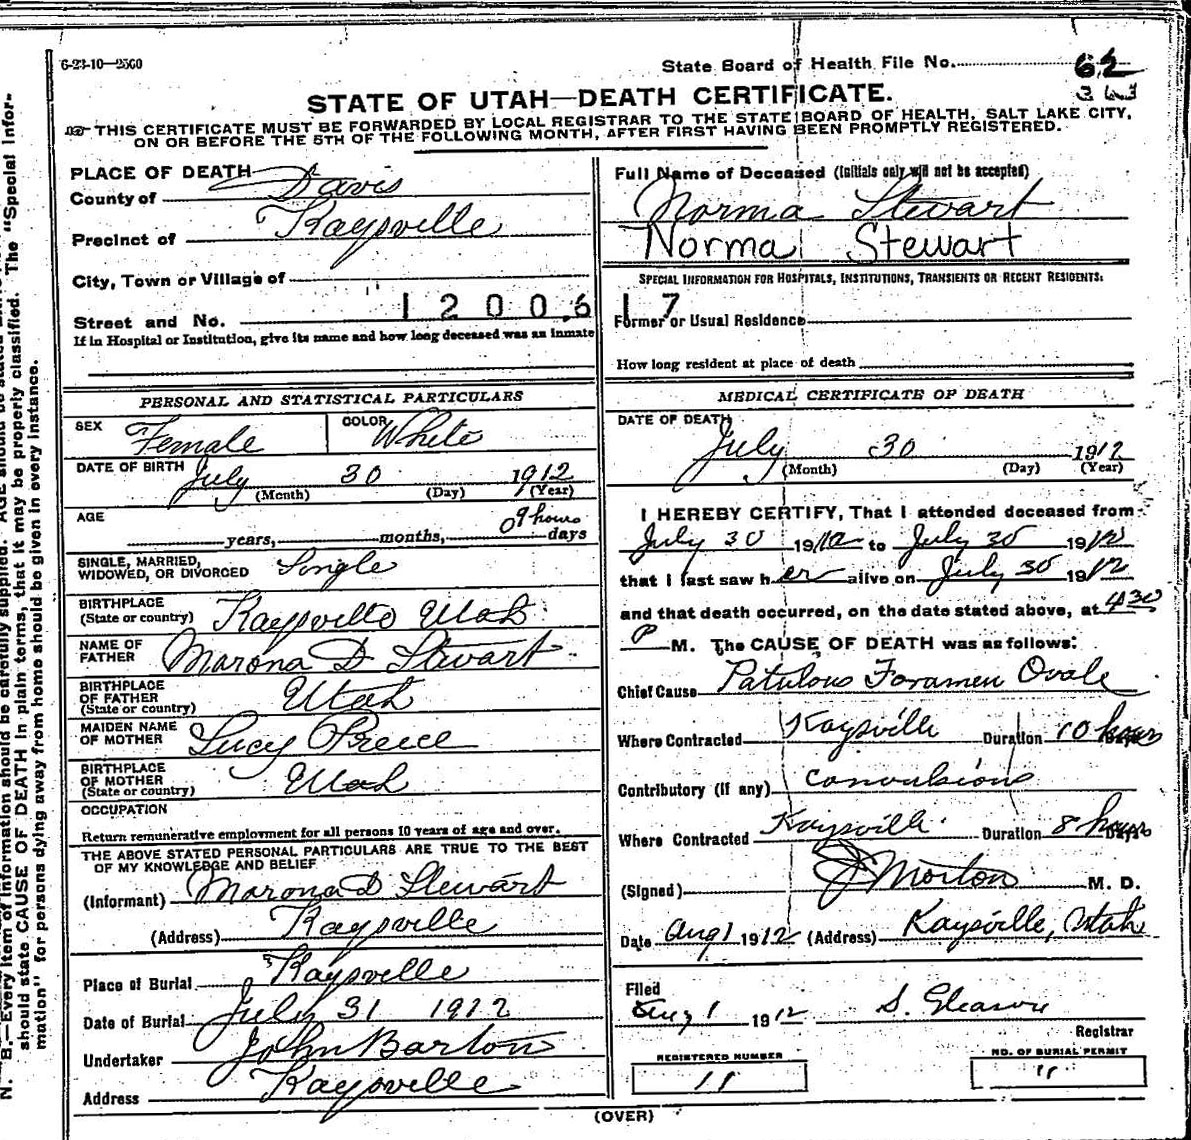 6-23-10—2500
State Board of Health File No. 62
STATE OF UTAH—DEATH CERTIFICATE.
THIS CERTIFICATE MUST BE FORWARDED BY LOCAL REGISTRAR TO THE STATE BOARD OF HEALTH, SALT LAKE CITY,
ON OR BEFORE THE 5TH OF THE FOLLOWING MONTH, AFTER FIRST HAVING BEEN PROMPTLY REGISTERED.
PLACE OF DEATH
County of Davis
Precinct of Kaysville
City, Town or Village of
Street and No. 1 2 0 0 6
If in Hospital or Institution, give its name and how long deceased was an inmate
Full Name of Deceased (Initials only will not be accepted)
Norma Stewart
Norma Stewart
SPECIAL INFORMATION FOR HOSPITALS, INSTITUTIONS, TRANSIENTS OR RECENT RESIDENTS:
1 7
Former or Usual Residence
How long resident at place of death
PERSONAL AND STATISTICAL PARTICULARS
SEX Female COLOR White
DATE OF BIRTH July 30 1912
(Month) (Day) (Year)
AGE 9 hours
years, months, 0 days
SINGLE, MARRIED,
WIDOWED, OR DIVORCED Single
BIRTHPLACE
(State or country) Kaysville Utah
NAME OF
FATHER Marona D Stewart
BIRTHPLACE
OF FATHER
(State or country) Utah
MAIDEN NAME
OF MOTHER Lucy Preece
BIRTHPLACE
OF MOTHER
(State or country) Utah
OCCUPATION
Return remunerative employment for all persons 10 years of age and over.
THE ABOVE STATED PERSONAL PARTICULARS ARE TRUE TO THE BEST
OF MY KNOWLEDGE AND BELIEF
(Informant) Marona D Stewart
(Address) Kaysville
Place of Burial Kaysville
Date of Burial July 31 1912
Undertaker John Barton
Address Kaysville
MEDICAL CERTIFICATE OF DEATH
DATE OF DEATH
July 30 1912
(Month) (Day) (Year)
I HEREBY CERTIFY, That I attended deceased from
July 30 1912 to July 30 1912
that I last saw her alive on July 30 1912
and that death occurred, on the date stated above, at 4 30
P M. The CAUSE OF DEATH was as follows:
Chief Cause Patulous Foramen Ovale
Where Contracted Kaysville Duration 10 hours
Contributory (if any) convulsions
Where Contracted Kaysville Duration 8 hours
(Signed) Morton M. D.
Date Aug 1 1912 (Address) Kaysville, Utah
Filed
Aug 1 1912 S. Gleason
Registrar
REGISTERED NUMBER NO. OF BURIAL PERMIT
11 11
(OVER)
N. B.—Every item of information should be carefully supplied. AGE should be stated
should state CAUSE OF DEATH in plain terms, that it may be properly classified. The "Special Infor-
mation" for persons dying away from home should be given in every instance.